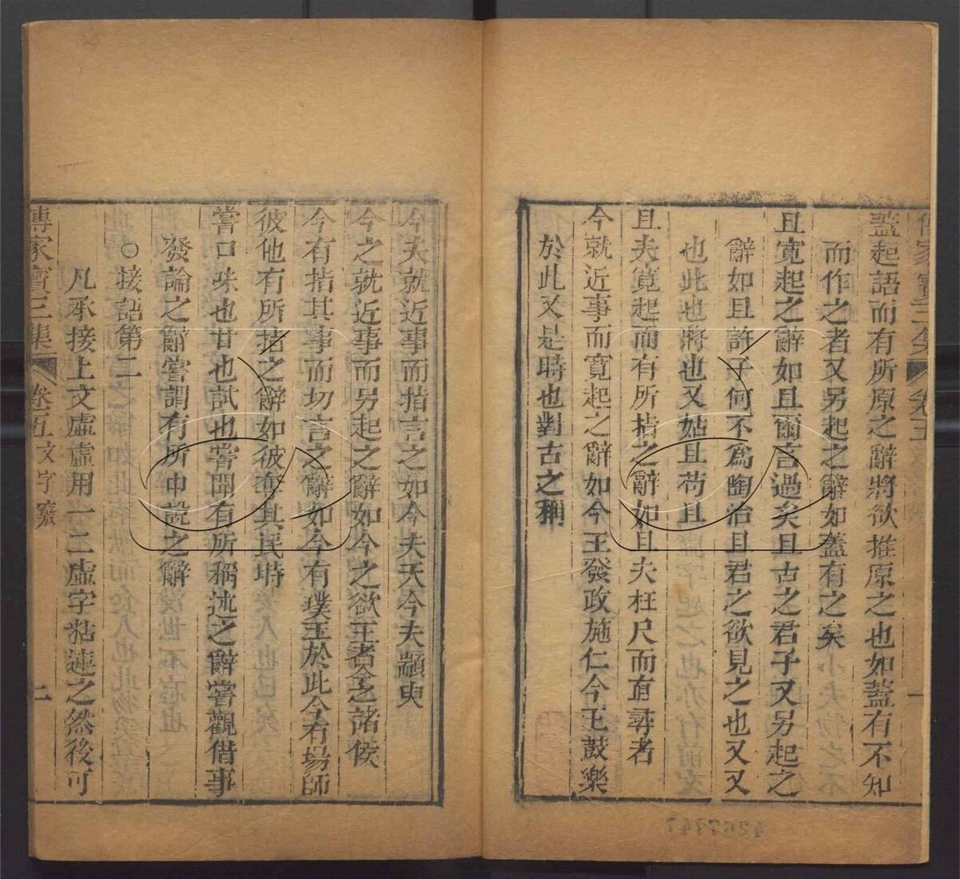 傳家寶三集 卷五 一
蓋起語而有所原之辭將欲推原之也如蓋有不知
而作之者又另起之辭如蓋有之矣
且寬起之辭如且爾言過矣且古之君子又另起之
辭如且許子何不爲陶冶且君之欲見之也又又
也此也將也又姑且苟且
且夫寬起而有所指之辭如且夫枉尺而直尋者
今就近事而寬起之辭如今王發政施仁今王鼓樂
於此又是時也對古之稱
今夫就近事而指言之如今夫天今夫顓臾
今之就近事而另起之辭如今之欲王者今之諸侯
今有指其事而切言之辭如今有璞玉於此今有場師
彼他有所指之辭如彼奪其民時
嘗口味也甘也試也嘗聞有所稱述之辭嘗觀借事
發論之辭嘗謂有所申說之辭
○接語第二
凡承接上文虛虛用一二虛字粘連之然後可
傳家寶三集 卷五文字竅 二
4267747